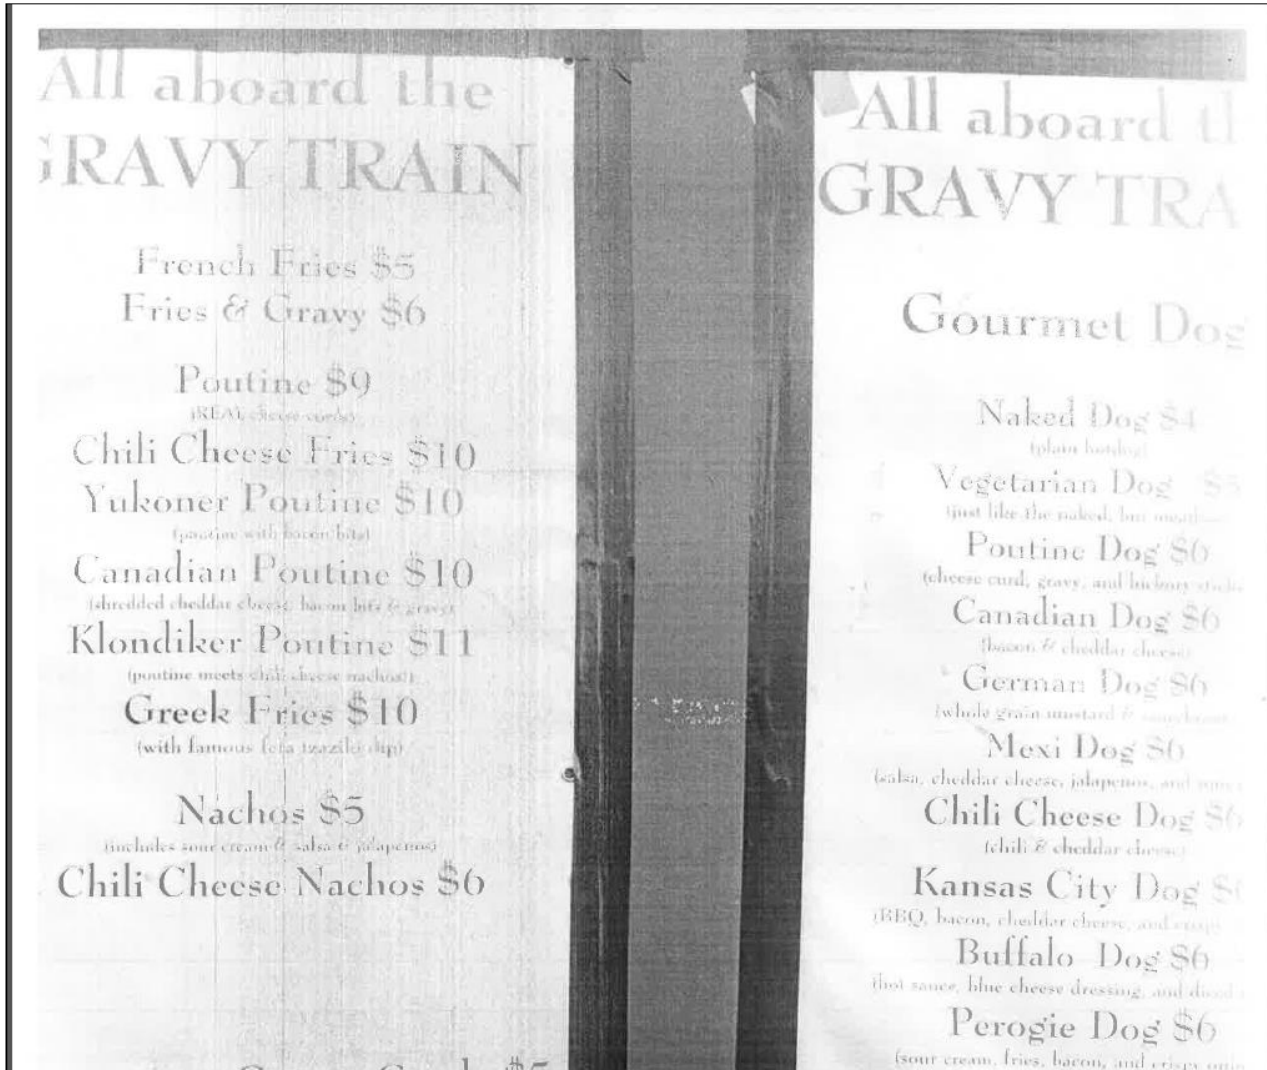 All aboard the
GRAVY TRAIN
French Fries $5
Fries & Gravy $6
Poutine $9
(REAL cheese curds)
Chili Cheese Fries $10
Yukoner Poutine $10
(poutine with bacon bits)
Canadian Poutine $10
(shredded cheddar cheese, bacon bits & gravy)
Klondiker Poutine $11
(poutine meets chili cheese nachos!)
Greek Fries $10
(with famous feta tzaziki dip)
Nachos $5
(includes sour cream & salsa & jalapenos)
Chili Cheese Nachos $6
$5
All aboard th
GRAVY TRA
Gourmet Dog
Naked Dog $4
(plain hotdog)
Vegetarian Dog $5
(just like the naked, but
Poutine Dog $6
(cheese curd, gravy, and hickory sticks
Canadian Dog $6
(bacon & cheddar cheese)
German Dog $6
(whole grain mustard & sauerkraut
Mexi Dog $6
(salsa, cheddar cheese, jalapenos, and
Chili Cheese Dog $6
(chili & cheddar cheese)
Kansas City Dog $6
(BBQ, bacon, cheddar cheese, and crispy
Buffalo Dog $6
(hot sauce, blue cheese dressing, and diced
Perogie Dog $6
(sour cream, fries, bacon, and crispy